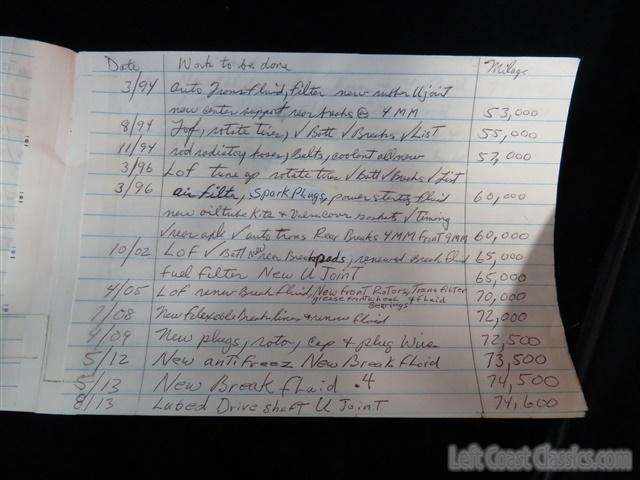 Date Work to be done Milage
3/94 Auto Trans Fluid, Filter new rubber U joint
new center support rear breaks @ 4 MM 53,000
8/94 Lof, rotate tires, √ Batt √ Breaks √ List 55,000
11/94 radiator hoses, Belts, coolant all new 57,000
3/96 Lof tune up rotate tires √ Batt √ Breaks √ List
3/96 air filter, Spark Plugs, power steering fluid 60,000
new oil tube Kits & Valve cover gaskets √ Timing
√ rear axle √ auto trans Rear Breaks 4 MM Front 9 MM 60,000
10/02 LOF √ Batt New rear Break pads, renewed Break fluid 65,000
fuel filter New U Joint 65,000
4/05 LOF renew Break fluid, New front Rotors, Trans filter & fluid 70,000
grease front wheel Bearings
7/08 New flexable Break lines & renew fluid 72,000
4/09 New plugs, rotor, cap & plug Wires 72,500
5/12 New antifreez New Break fluid 73,500
5/13 New Break fluid .4 74,500
8/13 Lubed Drive shaft U Joint 74,600
Left Coast Classics.com